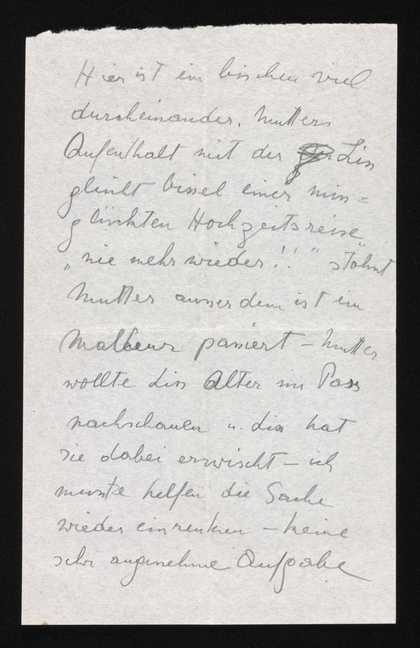 Hier ist ein bischen viel
durcheinander. Mutters
Aufenthalt mit der Lis
gleicht bissel einer miss=
glückten Hochzeitsreise,
"nie mehr wieder!!" stöhnt
Mutter ausserdem ist ein
Malheur passiert – Mutter
wollte Lis Alter im Pass
nachschauen u. Lis hat
sie dabei erwischt – ich
musste helfen die Sache
wieder einrenken – keine
sehr angenehme Aufgabe